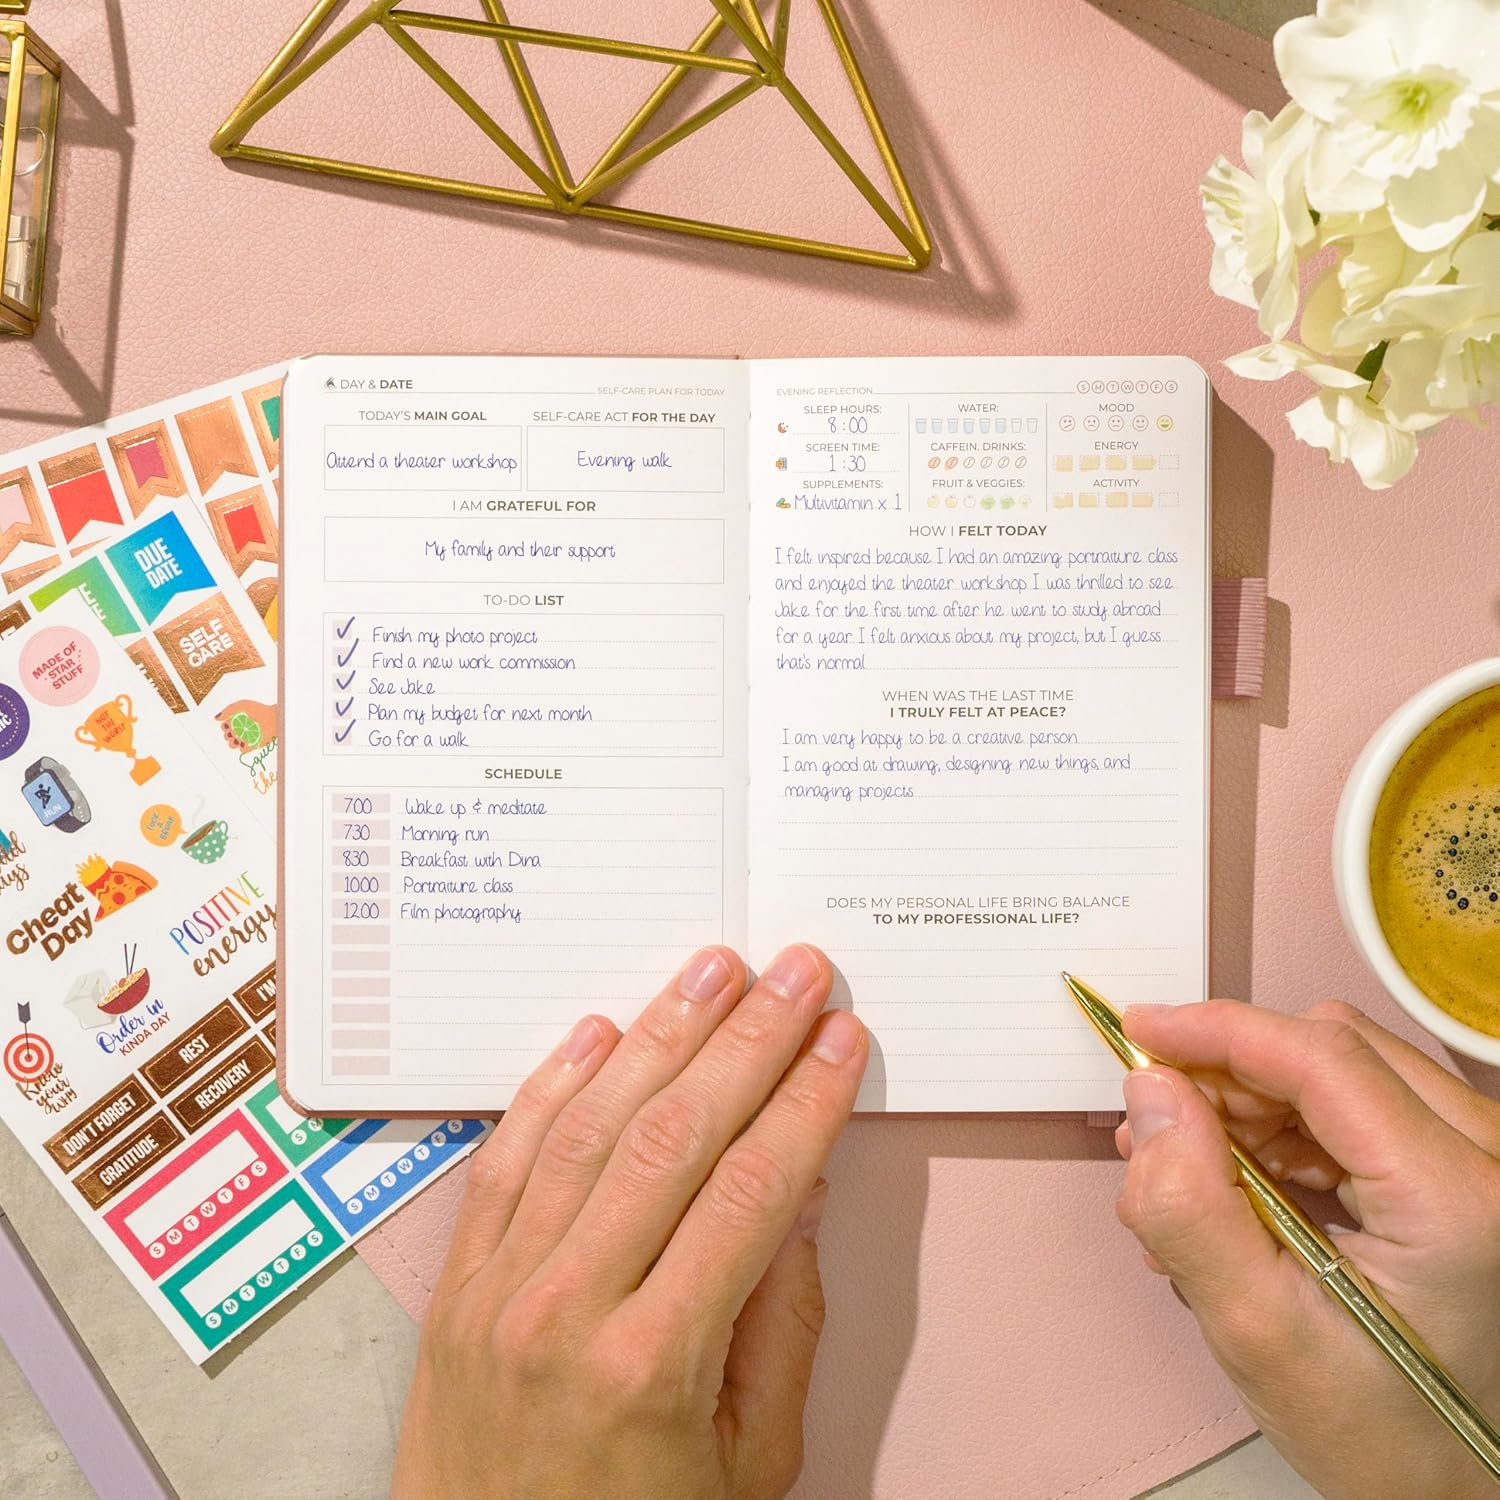 DAY & DATE
SELF-CARE PLAN FOR TODAY
TODAY'S MAIN GOAL
SELF-CARE ACT FOR THE DAY
Attend a theater workshop
Evening walk
I AM GRATEFUL FOR
My family and their support
TO-DO LIST
Finish my photo project
Find a new work commission
See Jake
Plan my budget for next month
Go for a walk
SCHEDULE
7:00 Wake up & meditate
7:30 Morning run
8:30 Breakfast with Dina
10:00 Portraiture class
12:00 Film photography
EVENING REFLECTION
S M T W T F S
SLEEP HOURS:
8:00
SCREEN TIME:
1:30
SUPPLEMENTS:
Multivitamin x 1
WATER:
CAFFEIN. DRINKS:
FRUIT & VEGGIES:
MOOD
ENERGY
ACTIVITY
HOW I FELT TODAY
I felt inspired because I had an amazing portraiture class
and enjoyed the theater workshop. I was thrilled to see
Jake for the first time after he went to study abroad
for a year. I felt anxious about my project, but I guess
that's normal.
WHEN WAS THE LAST TIME
I TRULY FELT AT PEACE?
I am very happy to be a creative person.
I am good at drawing, designing new things, and
managing projects.
DOES MY PERSONAL LIFE BRING BALANCE
TO MY PROFESSIONAL LIFE?
DUE
DATE
SELF
CARE
MADE OF
STAR
STUFF
NOT
THE
WORST
RUN
TAKE
A
BREAK
Cheat
Day
POSITIVE
energy
Order in
KINDA DAY
Know
your
WHY
REST
I'M
DON'T FORGET
RECOVERY
GRATITUDE
S M T W T F S
S M T W T F S
S M T W T F S